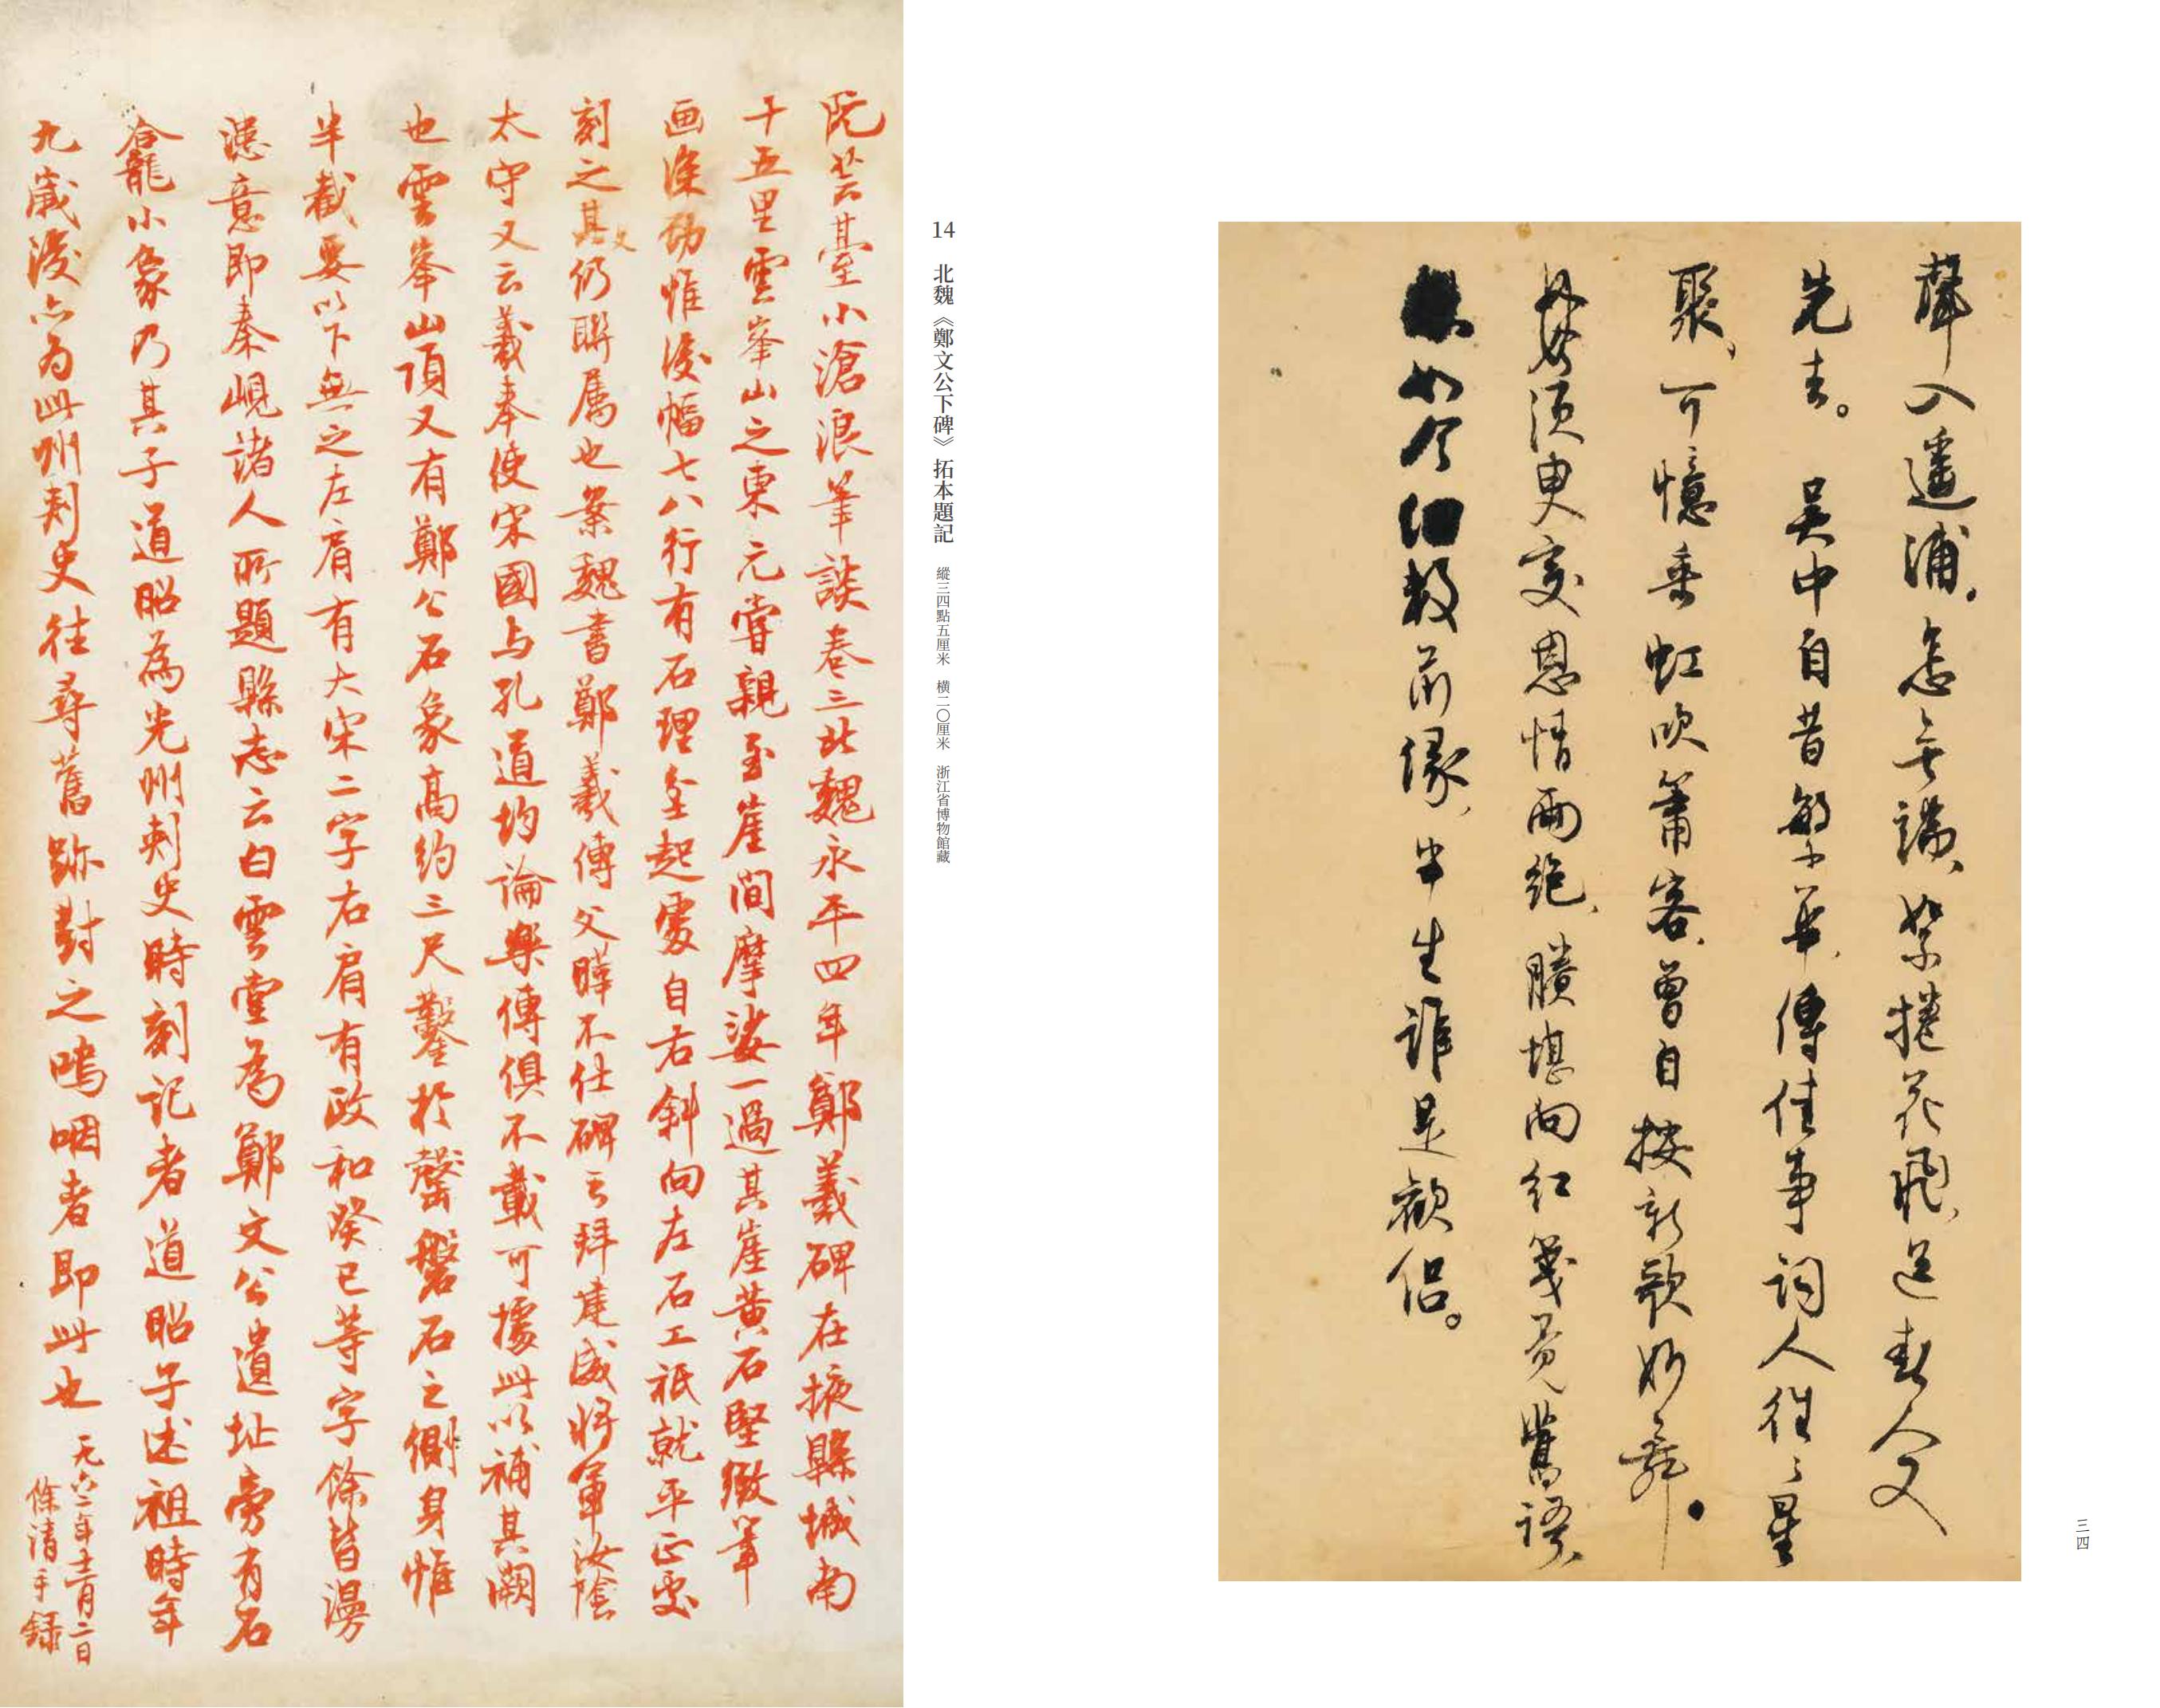 聲入遥浦。怎無端、緊捲花飛、送春人又
先去。 吴中自昔繁華、傳佳事詞人往〻星
聚、可憶乘虹吹簫客、曾自按新歌妙舞。
須更変恩情兩絶、賸堪向紅箋覓舊語、
如今細数前緣、半生誰是歡侣。
三四
14 北魏《鄭文公下碑》拓本題記 縱三四點五厘米 橫二〇厘米 浙江省博物館藏
阮芸臺小滄浪筆談卷三北魏永平四年鄭羲碑在掖縣城南
十五里雲峯山之東元嘗親至崖間摩挲一過其崖黄石堅緻筆
画深勁惟後幅七八行有石理坌起處自右斜向左石工祇就平正處
刻之其文仍聯属也案魏書鄭羲傳父曄不仕碑云拜建威將軍汝陰
太守又云羲奉使宋國与孔道均論樂傳俱不載可據此以補其闕
也雲峯山頂又有鄭公石象高約三尺鑿於罄磐石之側身惟
半截要以下無之左肩有大宋二字右肩有政和癸巳等字餘皆漫
漶意即秦峴諸人所題縣志云白雲堂為鄭文公遺址旁有石
龕小象乃其子道昭為光州刺史時刻記者道昭子述祖時年
九歲後亦为此州刺史往尋舊跡對之嗚咽者即此也
一九六二年十二月二日
餘清手録